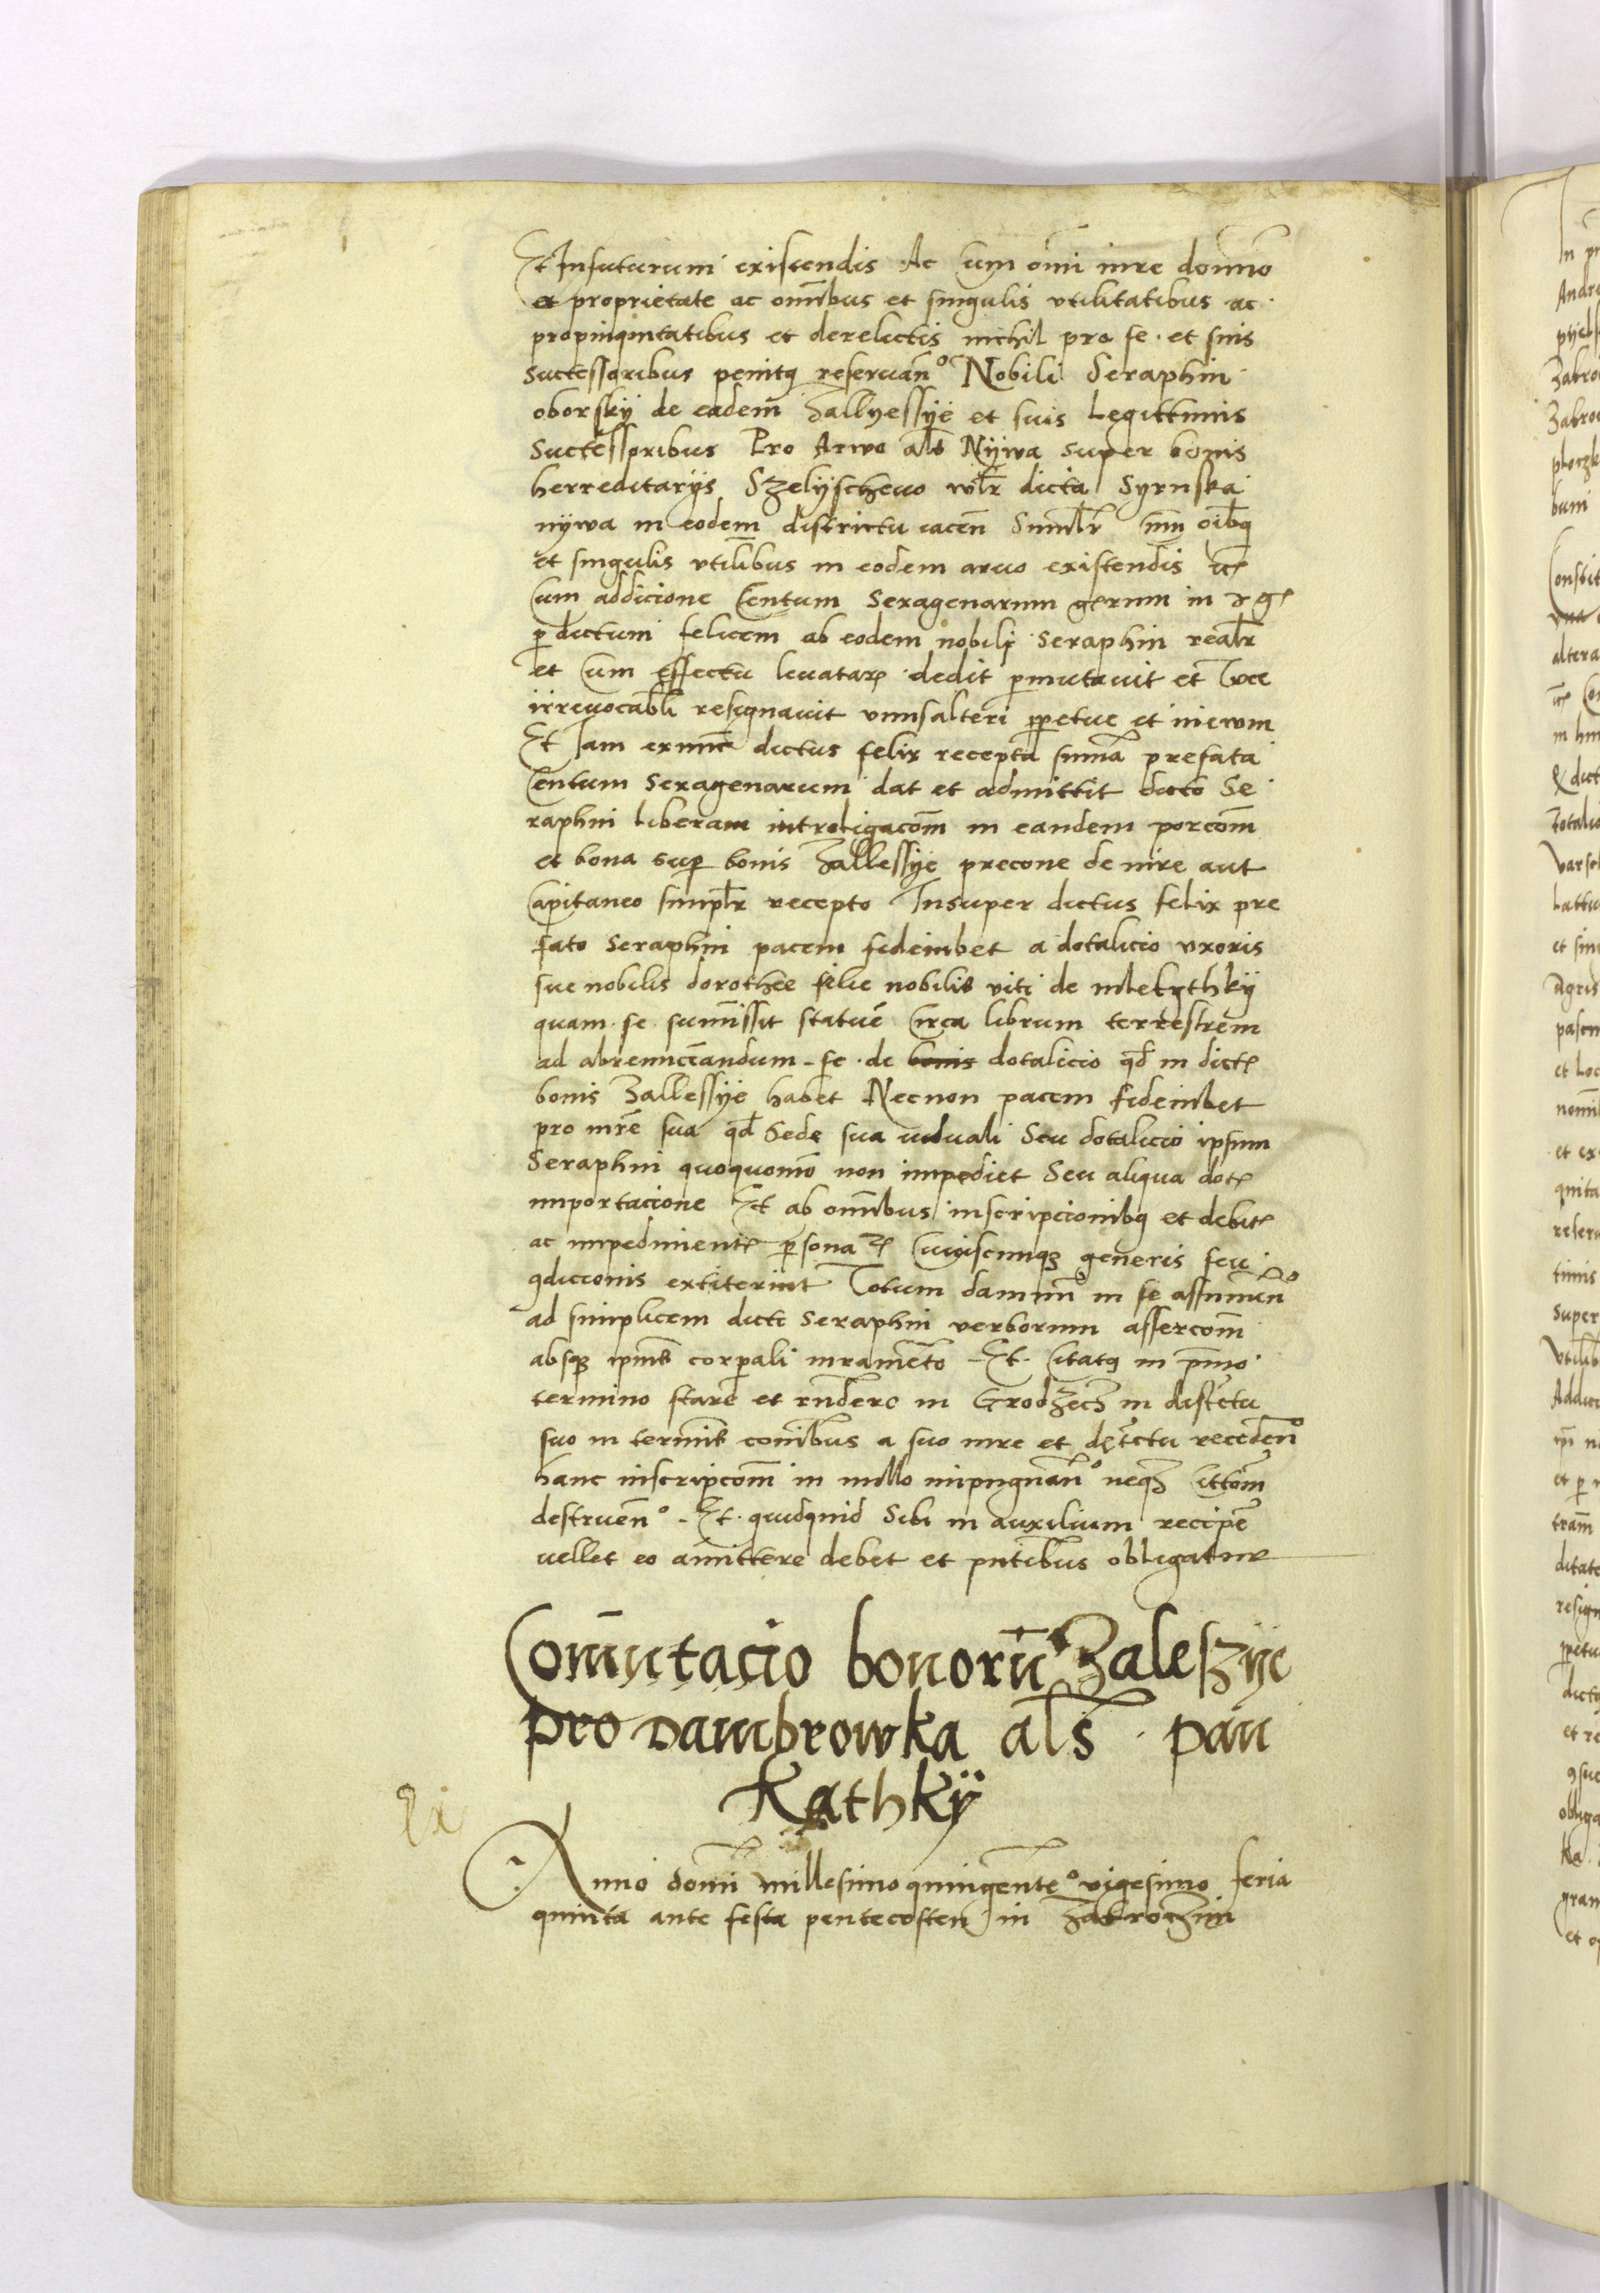 Et Infuturum existendis Ac Cum om̄i iure domīo
et proprietate ac om̄ibus et singulis vtilitatibus ac
propinquitatibus et derelictis nichil pro se et suis
Successoribus penitꝗ reseruan̄o Nobili Seraphin
oborskÿ de eadem̄ Zallyessÿe et suis Legittimis
Successoribus Pro Arwo al̄s Nÿwa super bonis
herreditarÿs Szelÿschewo wl̄r dicta Syrnska
nÿwa in eodem districtu iacen̄ Siml̄r cum oīb̄ꝗ
et singulis vtilībus in eodem aruo existendis
Cum addicione Centum Sexagenarum in
ꝑ dictum felicem ab eodem nobili Seraphin real̄r
et Cum effectu leuatar dedit ꝑmutauit et
irreuocabl̄i resignauit vnusalteri ꝑpetue et in ewm
Et Iam exnūc dictus felix recepta sum̄a prefata
Centum Sexagenarum dat et admittit dicto Se
raphin Liberam intro ligacōm in eandem porcōm
et bona suꝑ bonis Zallessÿe precone de iure aut
Capitaneo simpl̄r recepto Insuper dictus felix pre
fato Seraphin pacem fideiubet a dotalicio vxoris
sue nobilis dorothee filie nobilis viti de mlekythkÿ
quam se summissit statue Circa librum terrestrem
ad abrenuncciandum se de bonis dotalicio qd̄ in dict
bonis Zallessÿe habet Necnon pacem fideiubet
pro mr̄e sua qd̄ Sede sua uiduali Seu dotalicio ipsum
Seraphin quoquomō non impediet Seu aliqua dot
importacione Et ab om̄ibus inscripcionibꝗ et debit
ac impediment ꝑsona Cuiuscunqꝫ generis seu
ꝯdicionis extiterint Totum damnū in se assumen̄o
ad simplicem dicti Seraphin verborum assercōm
absqꝫ corꝑali iuramēto Et Citatꝗ in pīmo
termino stare et rn̄dere in Grodzecz in distctu
suo in termīs a suo iure et receden̄o
hanc inscripcōm in nullo inpugnan̄o neqꝫ
destruen̄o Et quidquid Sibi in auxilium recipe
uellet eo amittere debet et pn̄tibus obligatur
Com̄utacio bonorū Zaleszÿe
pro Dambrowka al̄s pan
Kathkÿ
Anno domī millesimo quingente͂o vigesimo feria
quinta ante festa pentecosten in Zakroczim